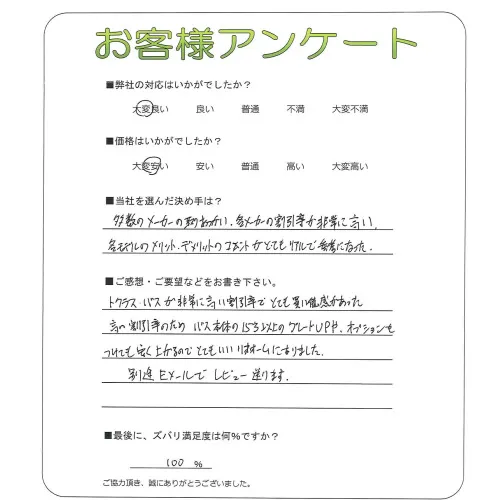 お客様アンケート
■弊社の対応はいかがでしたか？
大変良い 良い 普通 不満 大変不満
■価格はいかがでしたか？
大変安い 安い 普通 高い 大変高い
■当社を選んだ決め手は？
多数のメーカーの取りあつかい、各メーカーの割引率が非常に高い、
各モデルのメリット、デメリットのコメントがとてもリアルで参考になった.
■ご感想・ご要望などをお書き下さい。
トクラス・バスが非常に高い割引率でとても買い得感があった
高い割引率のため バス本体の1ランク以上のグレードUPや、オプションを
つけても安く上がるのでとてもいいリフォームになりました.
別途Eメールでレビュー送ります.
■最後に、ズバリ満足度は何％ですか？
100 %
ご協力頂き、誠にありがとうございました。